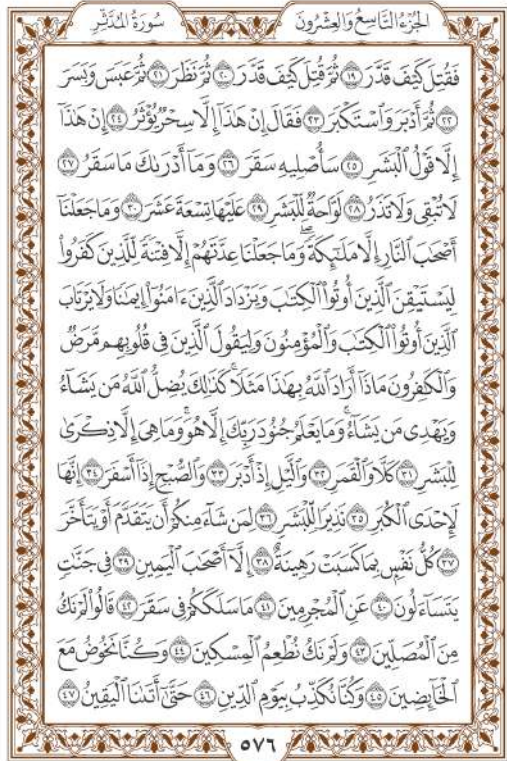 الجزء التاسع والعشرون
سورة المدثر
فَقُتِلَ كَيْفَ قَدَّرَ ١٩ ثُمَّ قُتِلَ كَيْفَ قَدَّرَ ٢٠ ثُمَّ نَظَرَ ٢١ ثُمَّ عَبَسَ وَبَسَرَ
٢٢ ثُمَّ أَدْبَرَ وَٱسْتَكْبَرَ ٢٣ فَقَالَ إِنْ هَٰذَآ إِلَّا سِحْرٌ يُؤْثَرُ ٢٤ إِنْ هَٰذَآ
إِلَّا قَوْلُ ٱلْبَشَرِ ٢٥ سَأُصْلِيهِ سَقَرَ ٢٦ وَمَآ أَدْرَىٰكَ مَا سَقَرُ ٢٧
لَا تُبْقِى وَلَا تَذَرُ ٢٨ لَوَّاحَةٌ لِّلْبَشَرِ ٢٩ عَلَيْهَا تِسْعَةَ عَشَرَ ٣٠ وَمَا جَعَلْنَآ
أَصْحَٰبَ ٱلنَّارِ إِلَّا مَلَٰٓئِكَةً ۙ وَمَا جَعَلْنَا عِدَّتَهُمْ إِلَّا فِتْنَةً لِّلَّذِينَ كَفَرُوا۟
لِيَسْتَيْقِنَ ٱلَّذِينَ أُوتُوا۟ ٱلْكِتَٰبَ وَيَزْدَادَ ٱلَّذِينَ ءَامَنُوٓا۟ إِيمَٰنًا وَلَا يَرْتَابَ
ٱلَّذِينَ أُوتُوا۟ ٱلْكِتَٰبَ وَٱلْمُؤْمِنُونَ وَلِيَقُولَ ٱلَّذِينَ فِى قُلُوبِهِم مَّرَضٌ
وَٱلْكَٰفِرُونَ مَاذَآ أَرَادَ ٱللَّهُ بِهَٰذَا مَثَلًا ۚ كَذَٰلِكَ يُضِلُّ ٱللَّهُ مَن يَشَآءُ
وَيَهْدِى مَن يَشَآءُ ۚ وَمَا يَعْلَمُ جُنُودَ رَبِّكَ إِلَّا هُوَ ۚ وَمَا هِىَ إِلَّا ذِكْرَىٰ
لِلْبَشَرِ ٣١ كَلَّا وَٱلْقَمَرِ ٣٢ وَٱلَّيْلِ إِذْ أَدْبَرَ ٣٣ وَٱلصُّبْحِ إِذَآ أَسْفَرَ ٣٤ إِنَّهَا
لَإِحْدَى ٱلْكُبَرِ ٣٥ نَذِيرًا لِّلْبَشَرِ ٣٦ لِمَن شَآءَ مِنكُمْ أَن يَتَقَدَّمَ أَوْ يَتَأَخَّرَ
٣٧ كُلُّ نَفْسٍۭ بِمَا كَسَبَتْ رَهِينَةٌ ٣٨ إِلَّآ أَصْحَٰبَ ٱلْيَمِينِ ٣٩ فِى جَنَّٰتٍ
يَتَسَآءَلُونَ ٤٠ عَنِ ٱلْمُجْرِمِينَ ٤١ مَا سَلَكَكُمْ فِى سَقَرَ ٤٢ قَالُوا۟ لَمْ نَكُ
مِنَ ٱلْمُصَلِّينَ ٤٣ وَلَمْ نَكُ نُطْعِمُ ٱلْمِسْكِينَ ٤٤ وَكُنَّا نَخُوضُ مَعَ
ٱلْخَآئِضِينَ ٤٥ وَكُنَّا نُكَذِّبُ بِيَوْمِ ٱلدِّينِ ٤٦ حَتَّىٰٓ أَتَىٰنَا ٱلْيَقِينُ ٤٧
٥٧٦